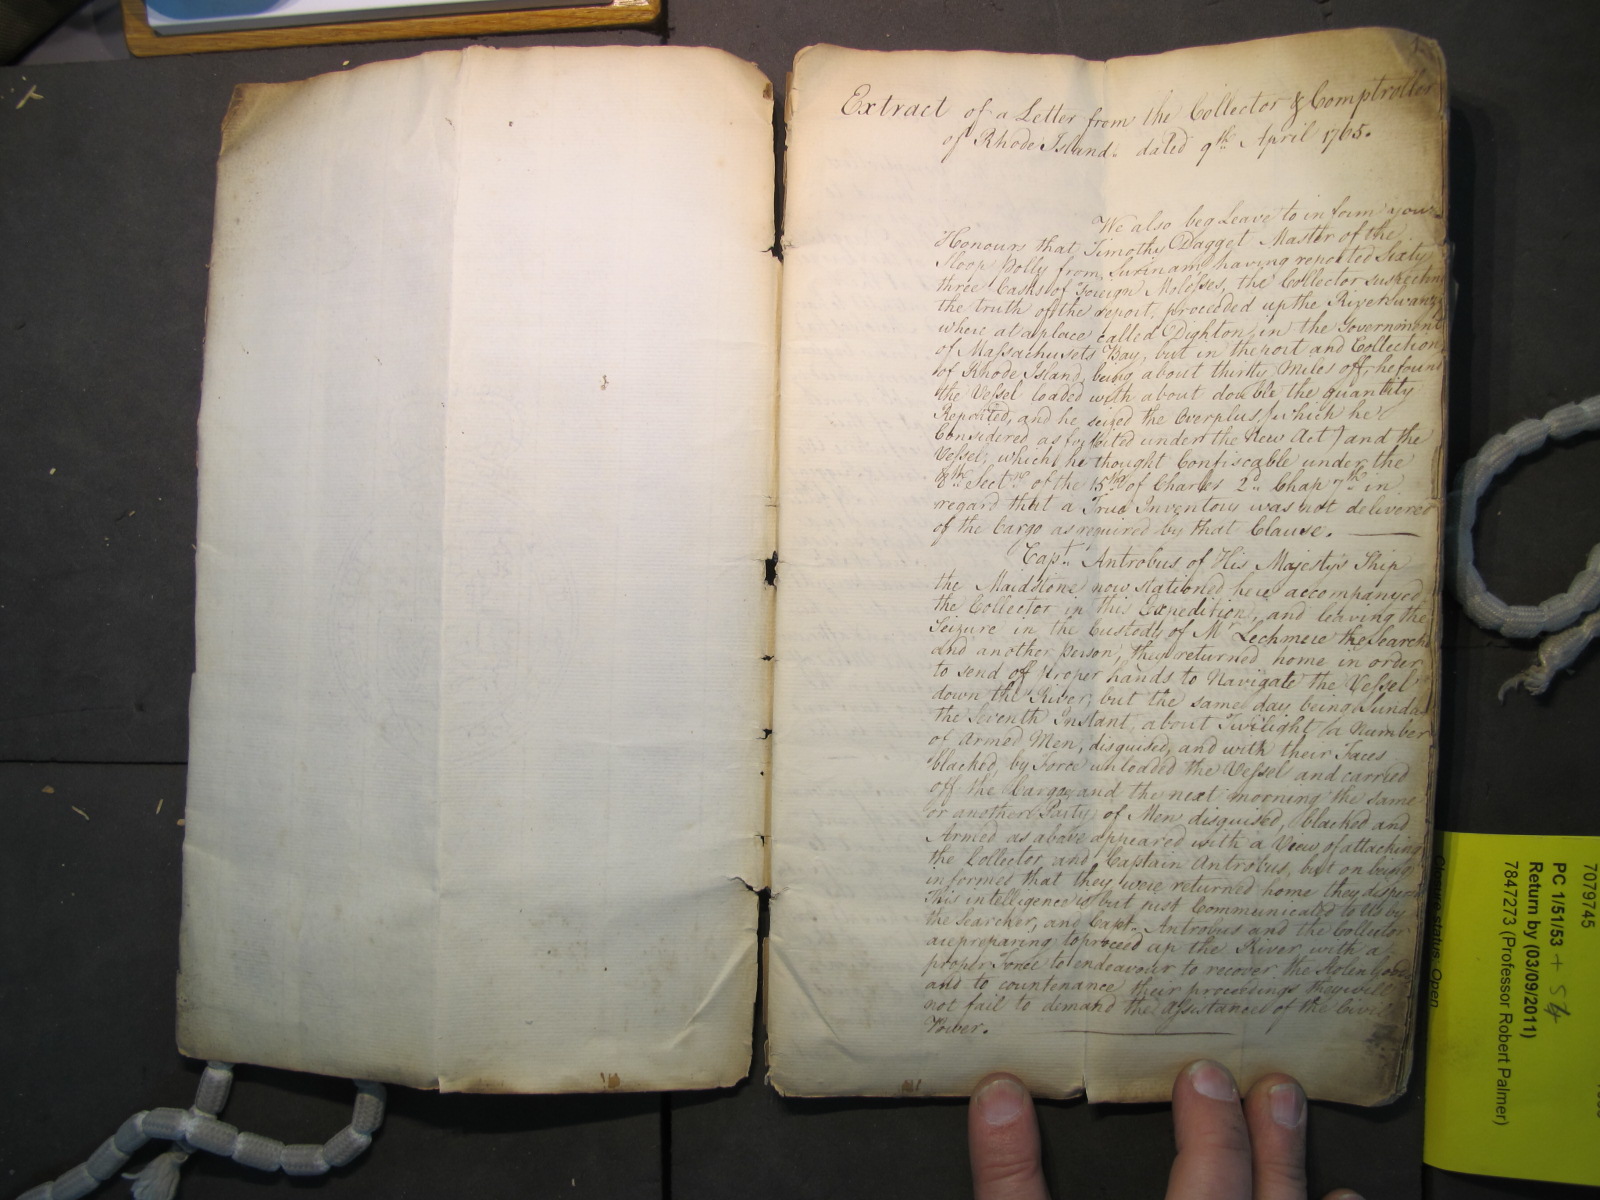 Extract of a Letter from the Collector & Comptroller
of Rhode Island. dated 9th April 1765.
We also beg Leave to inform your
Honours that Timothy Dagget Master of the
Sloop Polly from Surinam having reported Sixty
three Casks of Foreign Molosses, the Collector suspecting
the truth of the report, proceeded up the River
where at a place called Dighton, in the Government
of Massachusets Bay, but in the port and Collection
of Rhode Island, being about thirty Miles off, he found
the Vessel loaded with about double the quantity
Reported, and he seized the Overplus (which he
Considered as forfeited under the New Act) and the
Vessel, which he thought Confiscable under the
8th Sectn. of the 15th of Charles 2d. Chap 7th in
regard that a True Inventory was not delivered
of the Cargo as required by that Clause.
Capt. Antrobus of His Majesty's Ship
the Maidstone now stationed here accompanyed
the Collector in this Expedition, and leaving the
Seizure in the Custody of Mr Lechmere the Search
and another person, they returned home in order
to send off proper hands to Navigate the Vessel
down the River, but the same day being Sunda
the Seventh Instant, about Twilight a Number
of Armed Men, disguised, and with their Faces
blacked, by Force unloaded the Vessel and carried
off the Cargo, and the next morning the same
or another Party of Men disguised, blacked and
Armed as above appeared with a View of attacking
the Collector, and Captain Antrobus, but on being
informed that they were returned home they dispers
This intelligence is but just Communicated to Us by
the Searcher, and Capt. Antrobus and the Collector
are preparing to proceed up the River with a
proper Force to endeavour to recover the Stolen Goods
and to countenance their proceedings they will
not fail to demand the Assistance of the Civil
Power.
7079745
PC 1/51/53 + 54
Return by (03/09/2011)
7847273 (Professor Robert Palmer)
Closure status: Open